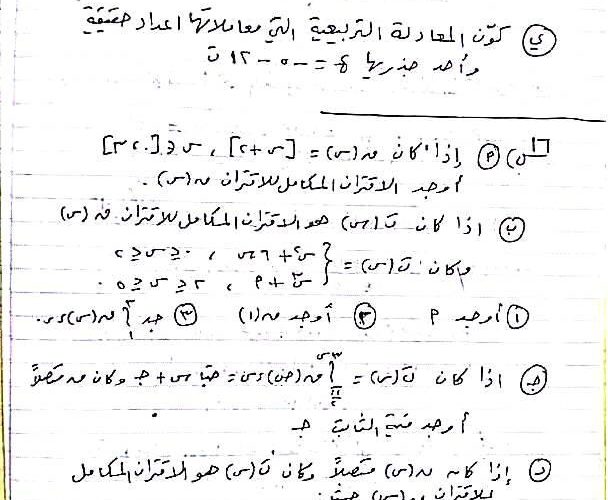 ي) كوّن المعادلة التربيعية التي معاملاتها اعداد حقيقية
وأحد جذريها ع = -٥ - ١٢ ت
س١٦) (٩) إذا كان ق(س) = [س+٢] ، س ∈ [٣،٠]
أوجد الاقتران المكامل للاقتران ق(س) .
ب) اذا كان ت(س) هو الاقتران المكامل للاقتران ق(س)
وكان ت(س) = { س٢ + ٦س ، ٠ ≤ س ≤ ٢
س٣ + ٩ ، ٢ ≤ س ≤ ٥
١) أوجد ٩ ٢) أوجد ق(١) ٣) جد ∫ ق(س) ء س .
ج) اذا كان ت(س) = ∫ ق(ص) ء ص = جتا س + جـ وكان ق متصلاً
أوجد قيمة الثابت جـ
د) إذا كان ق(س) متصلاً وكان ت(س) هو الاقتران المكامل
للاقتران ق(س) حيث